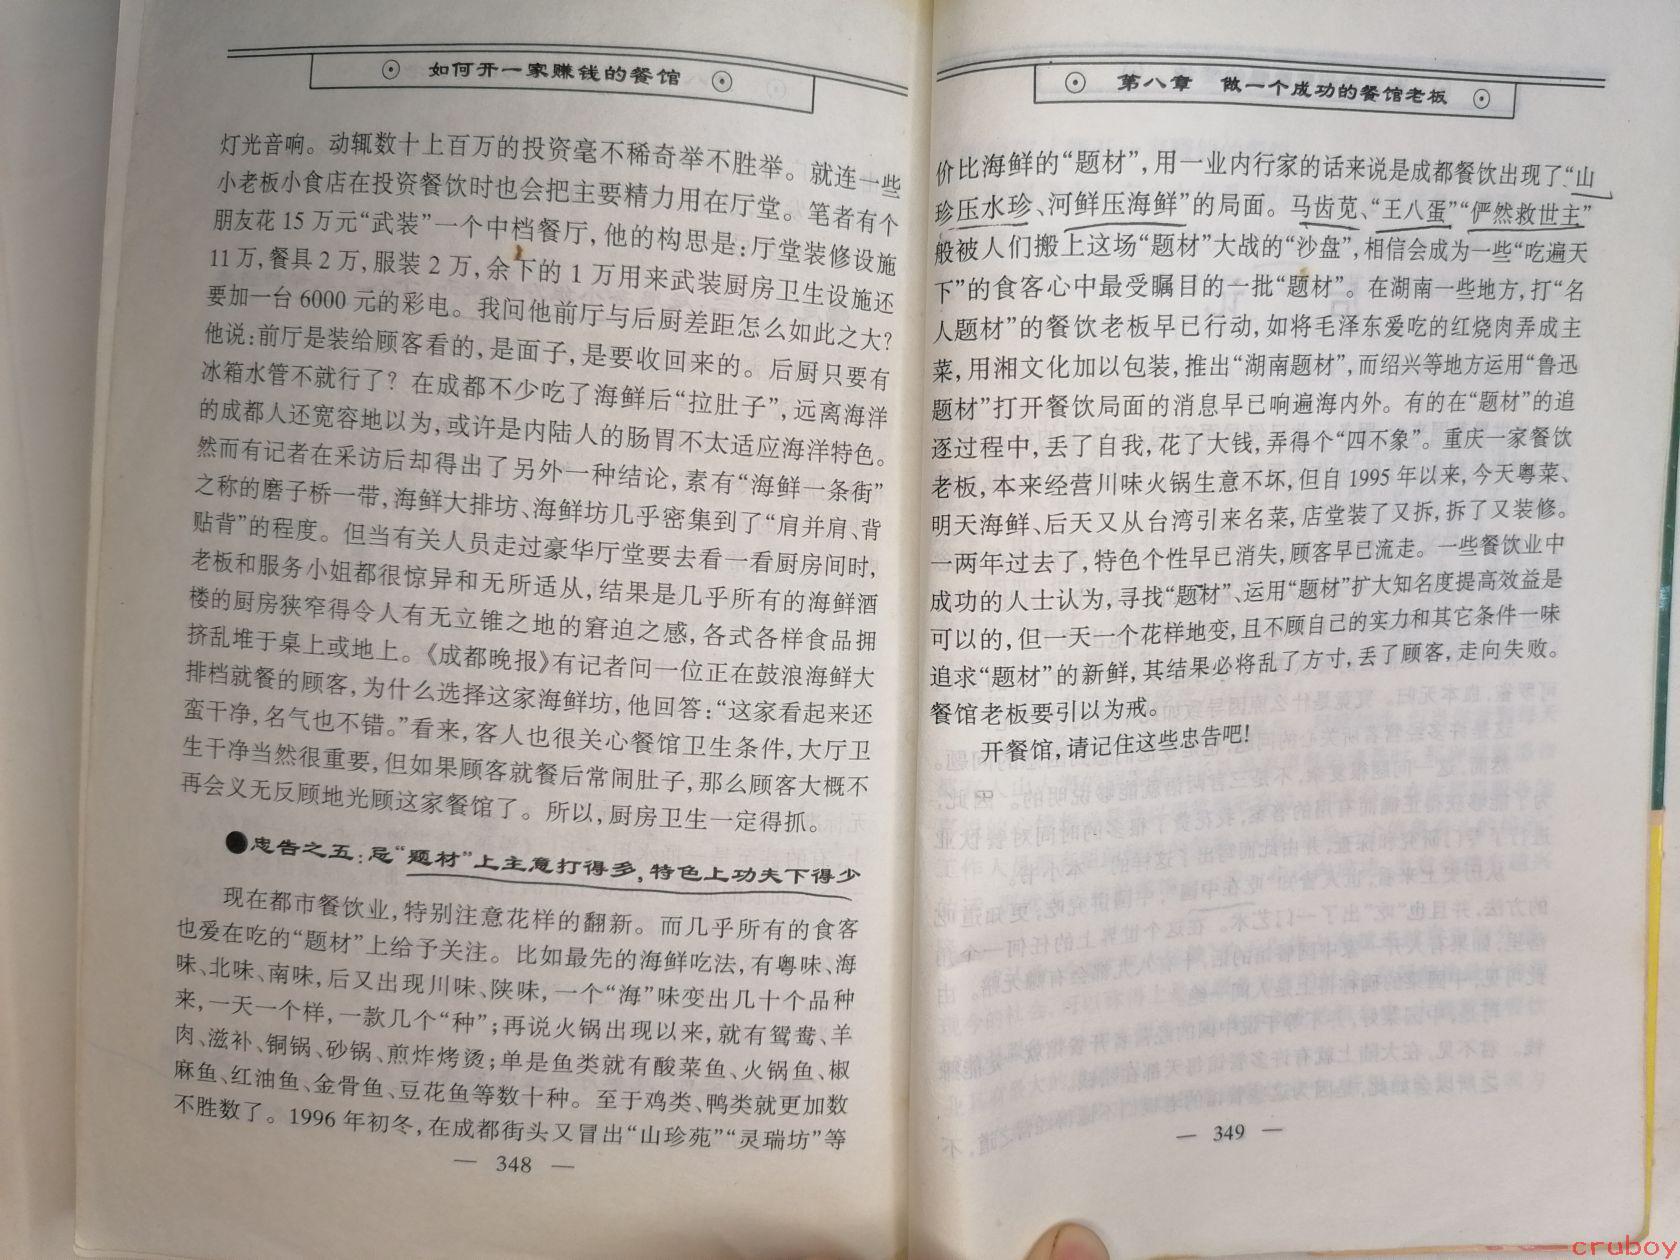 如何开一家赚钱的餐馆
灯光音响。动辄数十上百万的投资毫不稀奇举不胜举。就连一些
小老板小食店在投资餐饮时也会把主要精力用在厅堂。笔者有个
朋友花15万元“武装”一个中档餐厅,他的构思是:厅堂装修设施
11万,餐具2万,服装2万,余下的1万用来武装厨房卫生设施还
要加一台6000元的彩电。我问他前厅与后厨差距怎么如此之大?
他说:前厅是装给顾客看的,是面子,是要收回来的。后厨只要有
冰箱水管不就行了?在成都不少吃了海鲜后“拉肚子”,远离海洋
的成都人还宽容地以为,或许是内陆人的肠胃不太适应海洋特色。
然而有记者在采访后却得出了另外一种结论,素有“海鲜一条街”
之称的磨子桥一带,海鲜大排坊、海鲜坊几乎密集到了“肩并肩、背
贴背”的程度。但当有关人员走过豪华厅堂要去看一看厨房间时,
老板和服务小姐都很惊异和无所适从,结果是几乎所有的海鲜酒
楼的厨房狭窄得令人有无立锥之地的窘迫之感,各式各样食品拥
挤乱堆于桌上或地上。《成都晚报》有记者问一位正在鼓浪海鲜大
排档就餐的顾客,为什么选择这家海鲜坊,他回答:“这家看起来还
蛮干净,名气也不错。”看来,客人也很关心餐馆卫生条件,大厅卫
生干净当然很重要,但如果顾客就餐后常闹肚子,那么顾客大概不
再会义无反顾地光顾这家餐馆了。所以,厨房卫生一定得抓。
●忠告之五:忌“题材”上主意打得多,特色上功夫下得少
现在都市餐饮业,特别注意花样的翻新。而几乎所有的食客
也爱在吃的“题材”上给予关注。比如最先的海鲜吃法,有粤味、海
味、北味、南味,后又出现川味、陕味,一个“海”味变出几十个品种
来,一天一个样,一款几个“种”;再说火锅出现以来,就有鸳鸯、羊
肉、滋补、铜锅、砂锅、煎炸烤烫;单是鱼类就有酸菜鱼、火锅鱼、椒
麻鱼、红油鱼、金骨鱼、豆花鱼等数十种。至于鸡类、鸭类就更加数
不胜数了。1996年初冬,在成都街头又冒出“山珍苑”“灵瑞坊”等
— 348 —
第八章 做一个成功的餐馆老板
价比海鲜的“题材”,用一业内行家的话来说是成都餐饮出现了“山
珍压水珍、河鲜压海鲜”的局面。马齿苋、“王八蛋”“俨然救世主”
般被人们搬上这场“题材”大战的“沙盘”,相信会成为一些“吃遍天
下”的食客心中最受瞩目的一批“题材”。在湖南一些地方,打“名
人题材”的餐饮老板早已行动,如将毛泽东爱吃的红烧肉弄成主
菜,用湘文化加以包装,推出“湖南题材”,而绍兴等地方运用“鲁迅
题材”打开餐饮局面的消息早已响遍海内外。有的在“题材”的追
逐过程中,丢了自我,花了大钱,弄得个“四不象”。重庆一家餐饮
老板,本来经营川味火锅生意不坏,但自1995年以来,今天粤菜、
明天海鲜、后天又从台湾引来名菜,店堂装了又拆,拆了又装修。
一两年过去了,特色个性早已消失,顾客早已流走。一些餐饮业中
成功的人士认为,寻找“题材”、运用“题材”扩大知名度提高效益是
可以的,但一天一个花样地变,且不顾自己的实力和其它条件一味
追求“题材”的新鲜,其结果必将乱了方寸,丢了顾客,走向失败。
餐馆老板要引以为戒。
开餐馆,请记住这些忠告吧!
— 349 —
cruboy